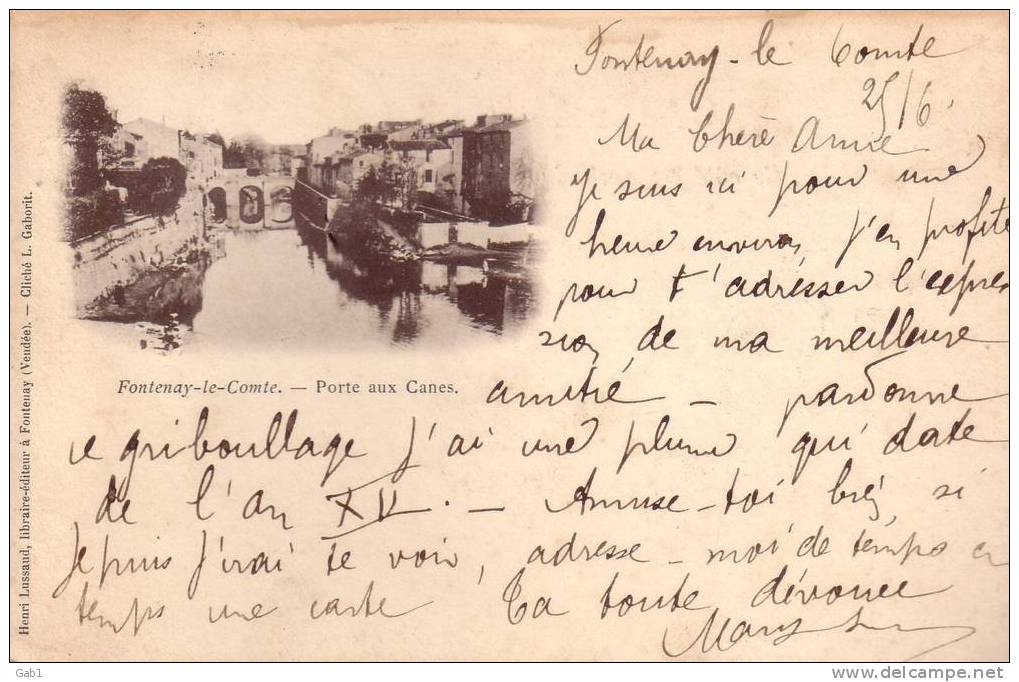 Fontenay-le Comte
25/6.
Ma Chère Amie
Je suis ici pour une
heure environ, j'en profite
pour t'adresser l'expres
sion de ma meilleure
amitié - pardonne
ce griboullage j'ai une plume qui date
de l'an XV. - Amuse-toi bien, si
Je puis j'irai te voir, adresse-moi de temps en
temps une carte Ta toute dévouée
Fontenay-le-Comte. — Porte aux Canes.
Henri Lussaud, libraire-éditeur à Fontenay (Vendée). — Cliché L. Gaborit.
Gab1
www.delcampe.net